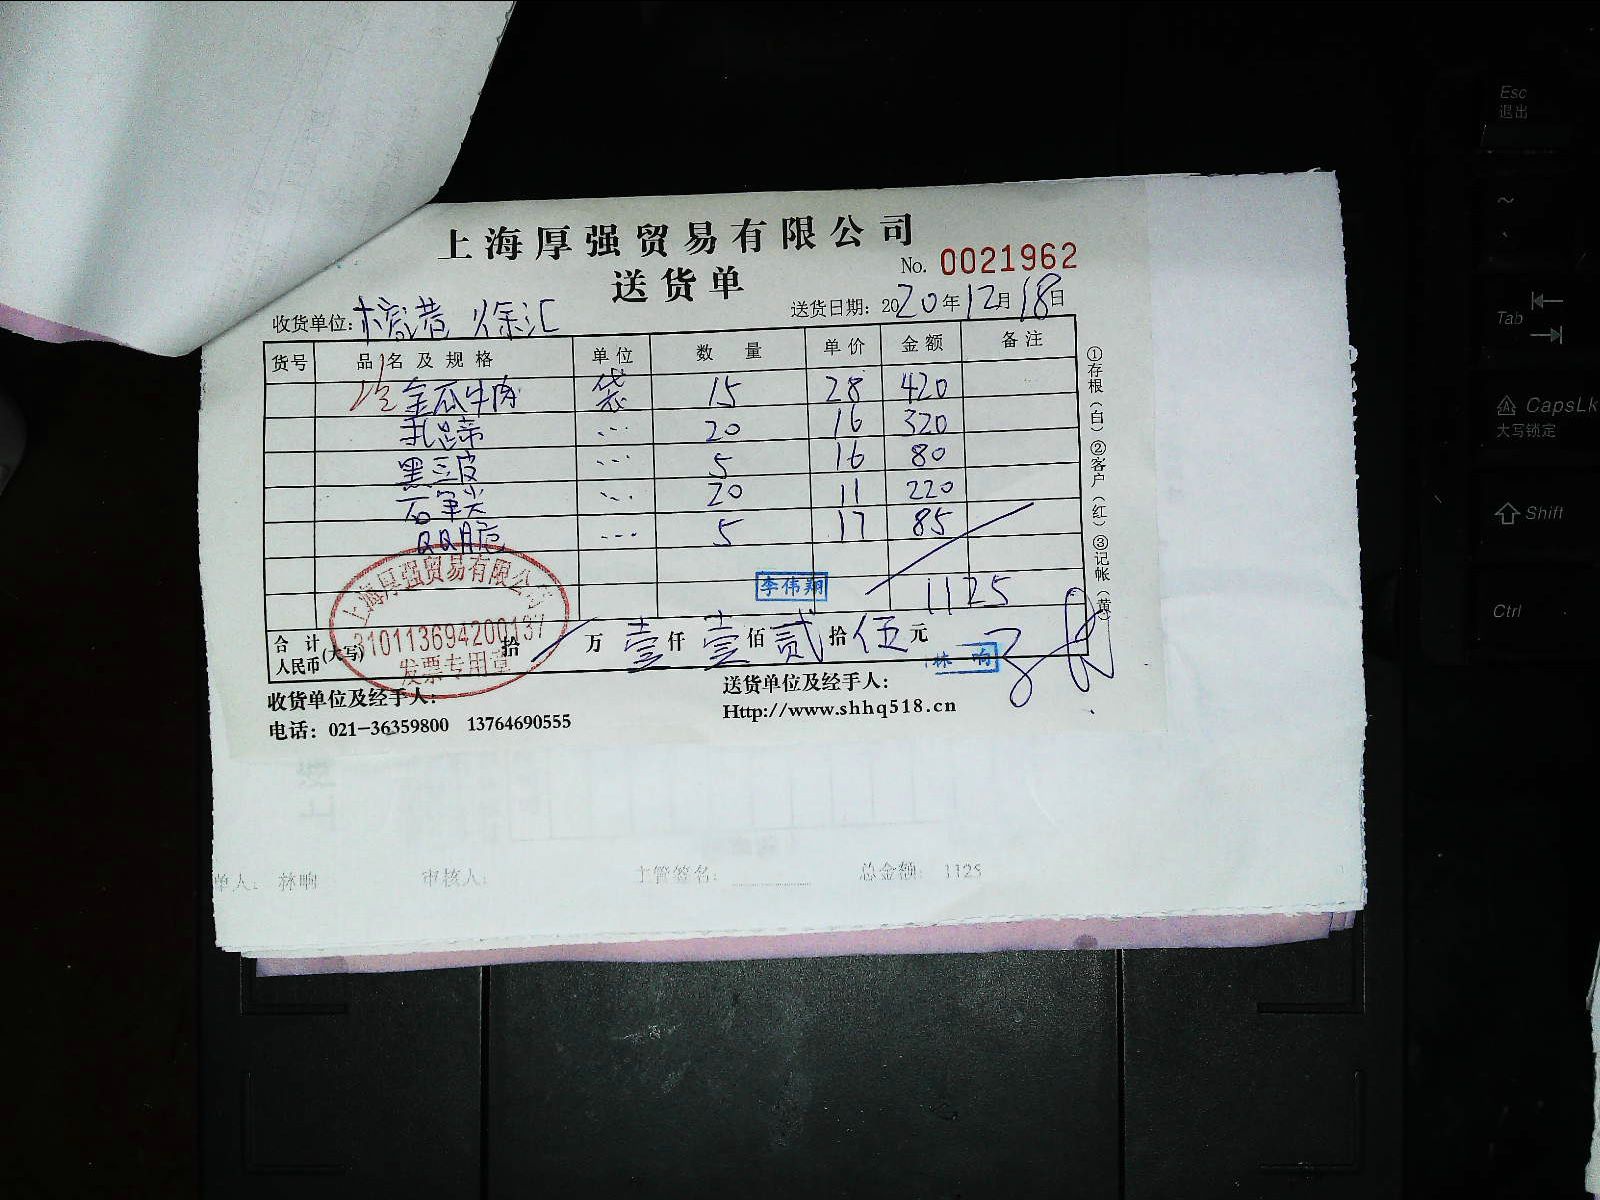 上海厚强贸易有限公司
送货单
No. 0021962
收货单位: 徐汇
送货日期: 2020年12月18日
货号 品名及规格 单位 数量 单价 金额 备注
金瓜牛肉 袋 15 28 420
扎蹄 ... 20 16 320
黑三皮 ... 5 16 80
石笋尖 ... 20 11 220
QQ脆 ... 5 17 85
李伟翔
1125
合计人民币(大写) 拾 万 壹仟 壹佰 贰拾 伍元
上海厚强贸易有限公司
310113694200137
发票专用章
林响
收货单位及经手人:
送货单位及经手人:
电话: 021-36359800 13764690555
Http://www.shhq518.cn
①存根(白) ②客户(红) ③记帐(黄)
单人: 林响 审核人: 主管签名: 总金额: 1125
Esc
退出
~
Tab
CapsLk
大写锁定
Shift
Ctrl